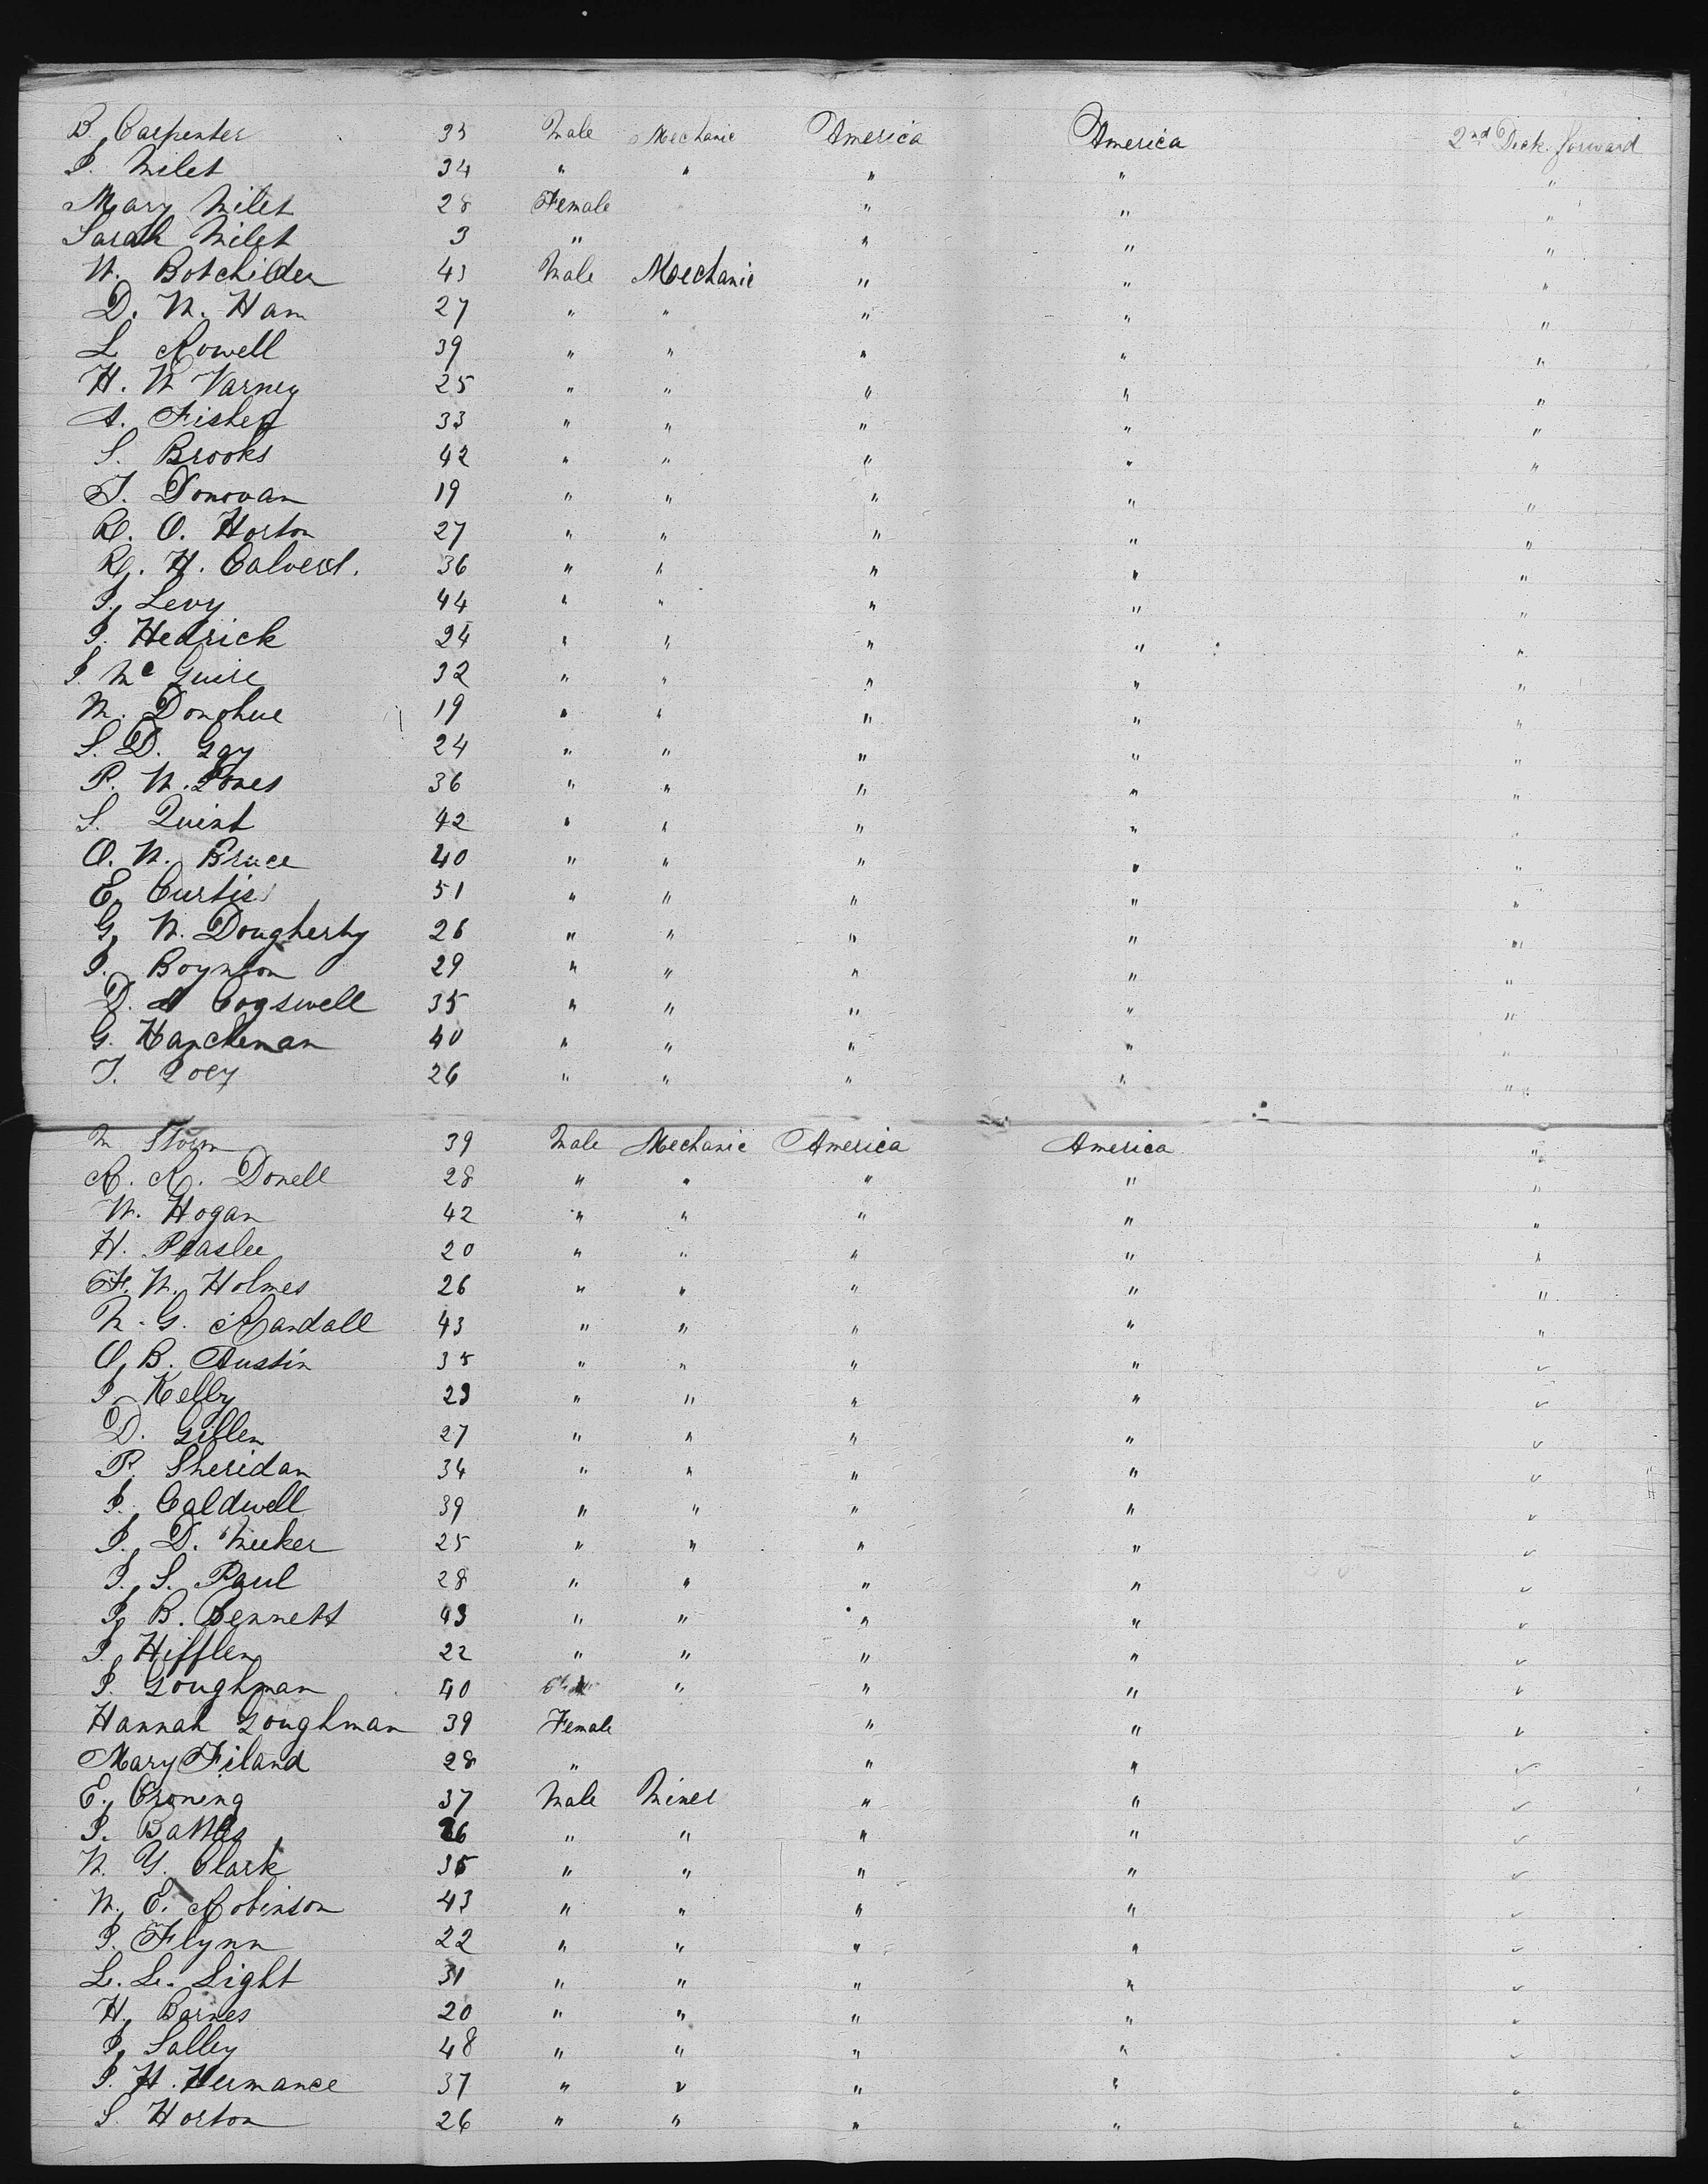 B. Carpenter 35 Male Mechanic America America 2nd Deck forward
J. Milet 34 " " " " "
Mary Milet 28 Female " " "
Sarah Milet 3 " " " "
W. Botchilder 43 Male Mechanic " " "
D. W. Ham 27 " " " " "
L Rowell 39 " " " " "
H. W Varney 25 " " " " "
A. Fisher 33 " " " " "
S. Brooks 42 " " " " "
T. Donovan 19 " " " " "
R. O. Horton 27 " " " " "
R. H. Calvert. 36 " " " " "
J. Levy 44 " " " " "
J. Hedrick 24 " " " " "
J. Mc Guire 32 " " " " "
M. Donohue 19 " " " " "
S. D. Gay 24 " " " " "
P. W. Jones 36 " " " " "
S. Quint 42 " " " " "
O. W. Bruce 40 " " " " "
E. Curtis 51 " " " " "
G. W. Dougherty 26 " " " " "
J. Boynton 29 " " " " "
D. A Cogswell 35 " " " " "
G. Hancheman 40 " " " " "
T. 26 " " " " "
M Storm 39 Male Mechanic America America "
R. R. Donell 28 " " " " "
W. Hogan 42 " " " " "
H. Peaslee 20 " " " " "
F. W. Holmes 26 " " " " "
M. G. Randall 43 " " " " "
O. B. Austin 35 " " " " "
J. Kelly 23 " " " " "
D. Gillen 27 " " " " "
P. Sheridan 34 " " " " "
J. Caldwell 39 " " " " "
J. D. Meeker 25 " " " " "
J. S. Paul 28 " " " " "
J. B. Bennett 43 " " " " "
J. Hifflen 22 " " " " "
J. Goughman 40 " " " "
Hannah Goughman 39 Female " " "
Mary Filand 28 " " " "
E. Croning 37 Male Miner " " "
J. Battles 26 " " " " "
W. Y. Clark 35 " " " " "
W. E. Robinson 43 " " " " "
J. Flynn 22 " " " " "
L. L. Light 31 " " " " "
H. Barnes 20 " " " " "
J. Salley 48 " " " " "
J. H. Hermance 37 " " " " "
S. Horton 26 " " " " "